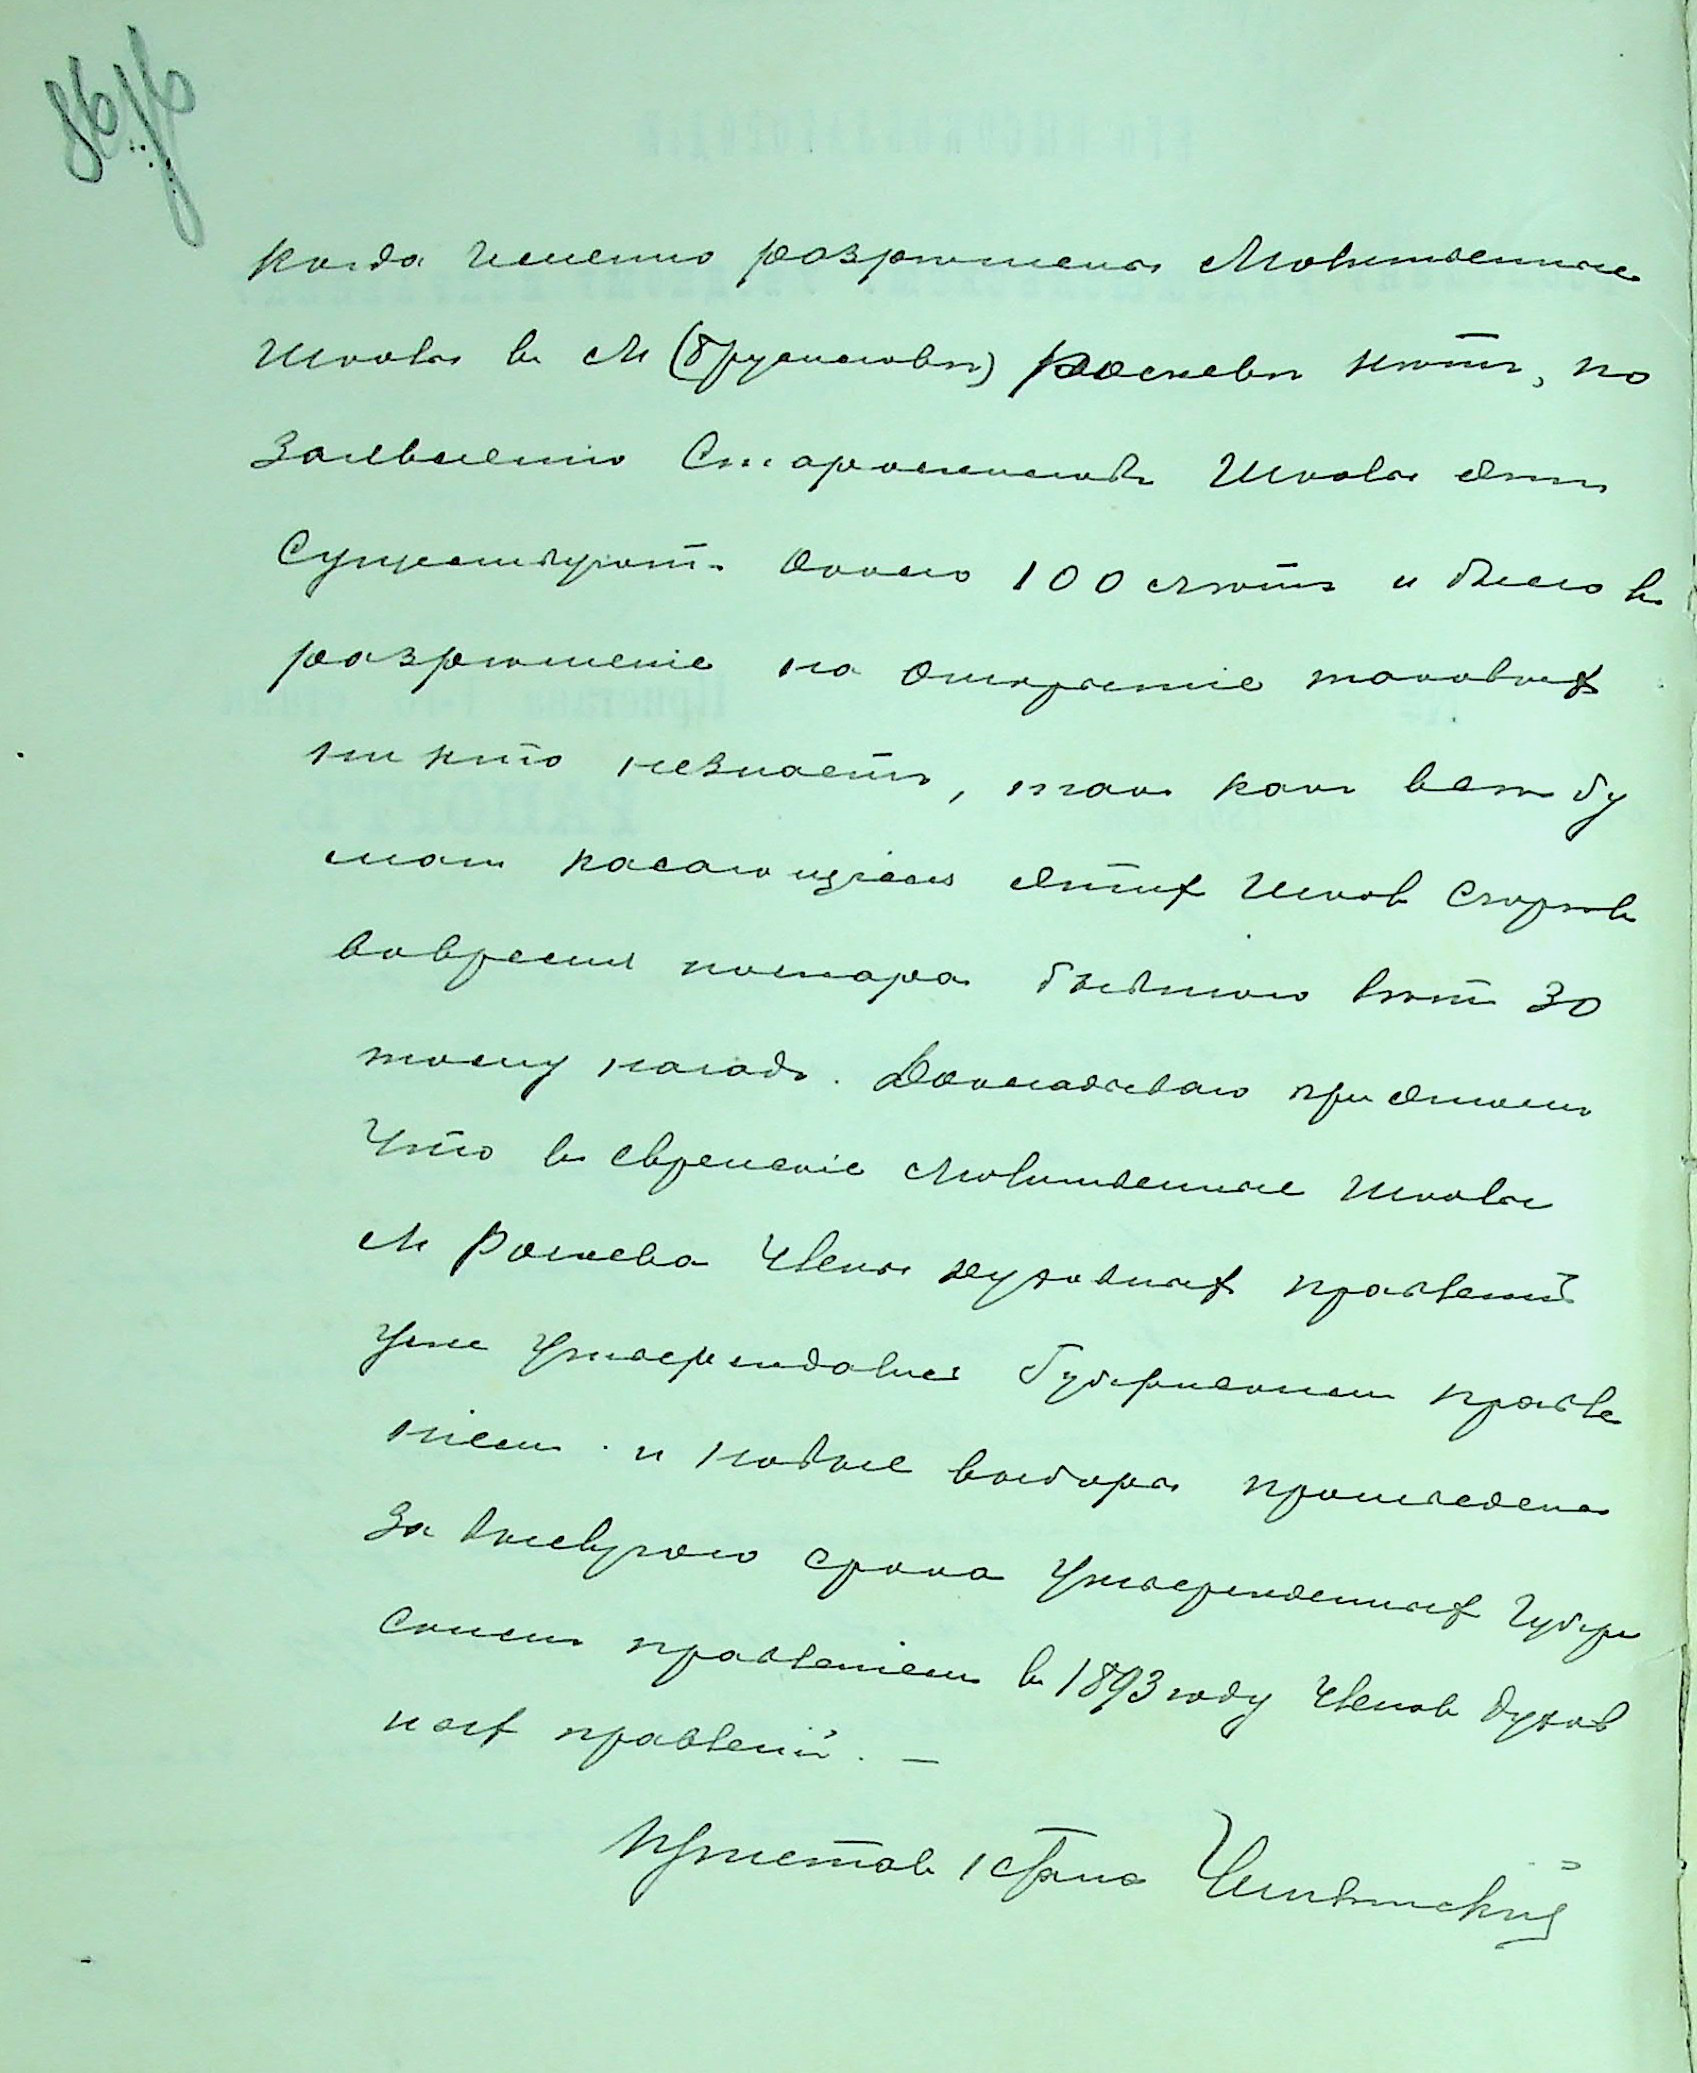 когда именно разрешены Молитвенные
Школы в М (Брусиловъ) Рожевъ нѣтъ, по
Заявленію Старожиловъ Школы эти
Существуютъ около 100 лѣтъ и было ль
разрѣшеніе на открытіе таковых
ни кто незнаетъ, такъ какъ всѣ бу
маги касающіяся этих Школ Сгорѣли
вовремя пожара бывшаго лѣтъ 30
тому назадъ. Докладываю при этомъ
Что в еврейскіе Молитвенные Школы
М Рожева Члены духовных правленій
уже утверждались Губернским правле
ніем и новые выборы произведены
За выслугою срока утвержденных Губерн
ским правленіем в 1893 году Членов духов
ных правленій. —
Пристав 1 стана